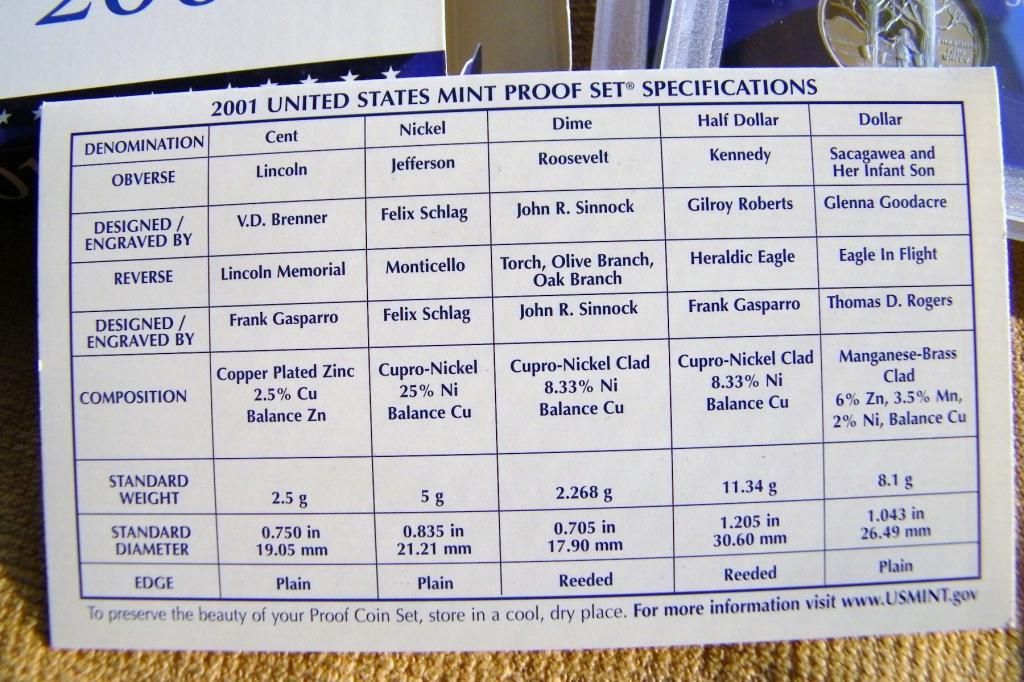 200
2001 UNITED STATES MINT PROOF SET® SPECIFICATIONS
DENOMINATION Cent Nickel Dime Half Dollar Dollar
OBVERSE Lincoln Jefferson Roosevelt Kennedy Sacagawea and
Her Infant Son
DESIGNED / V.D. Brenner Felix Schlag John R. Sinnock Gilroy Roberts Glenna Goodacre
ENGRAVED BY
REVERSE Lincoln Memorial Monticello Torch, Olive Branch, Heraldic Eagle Eagle In Flight
Oak Branch
DESIGNED / Frank Gasparro Felix Schlag John R. Sinnock Frank Gasparro Thomas D. Rogers
ENGRAVED BY
COMPOSITION Copper Plated Zinc Cupro-Nickel Cupro-Nickel Clad Cupro-Nickel Clad Manganese-Brass
2.5% Cu 25% Ni 8.33% Ni 8.33% Ni Clad
Balance Zn Balance Cu Balance Cu Balance Cu 6% Zn, 3.5% Mn,
2% Ni, Balance Cu
STANDARD
WEIGHT 2.5 g 5 g 2.268 g 11.34 g 8.1 g
STANDARD 0.750 in 0.835 in 0.705 in 1.205 in 1.043 in
DIAMETER 19.05 mm 21.21 mm 17.90 mm 30.60 mm 26.49 mm
EDGE Plain Plain Reeded Reeded Plain
To preserve the beauty of your Proof Coin Set, store in a cool, dry place. For more information visit www.USMINT.gov